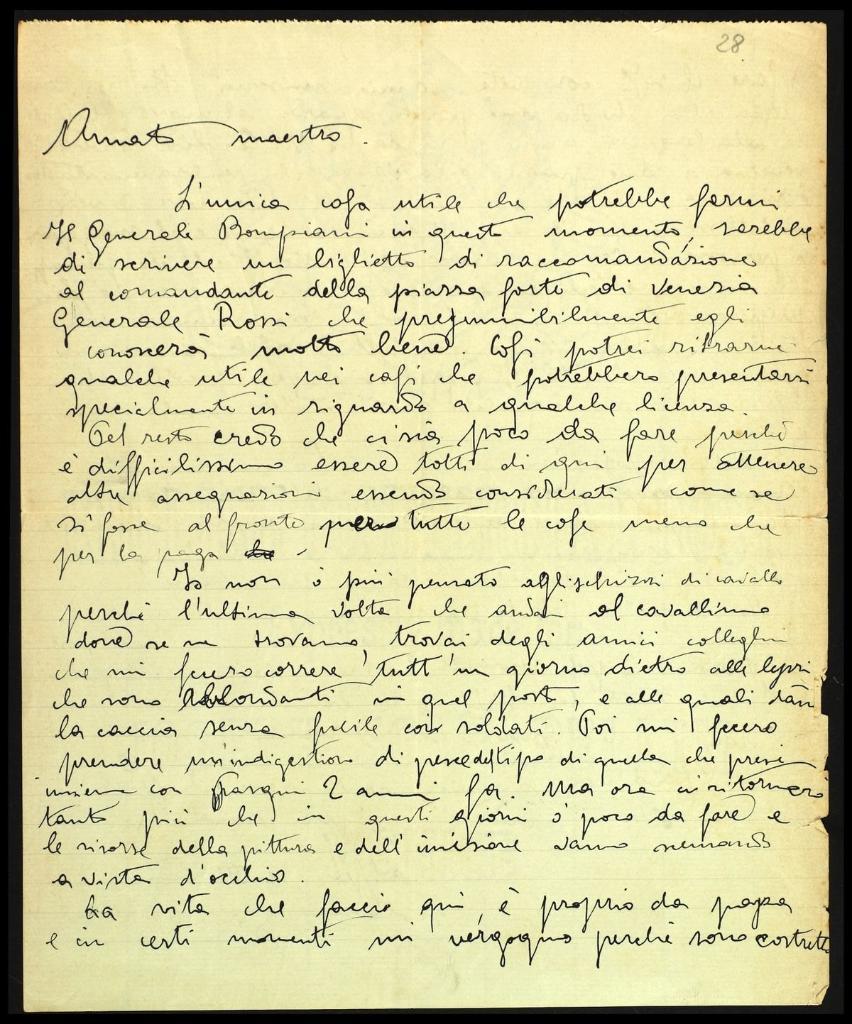 28
Amato maestro.
L'unica cosa utile che potrebbe farmi
Il Generale Bompiani in questo momento, sarebbe
di scrivere un biglietto di raccomandazione
al comandante della piazza forte di Venezia
Generale Rossi che presumibilmente egli
conoscerà molto bene. Così potrei ritrarne
qualche utile nei casi che potrebbero presentarsi
specialmente in riguardo a qualche licenza.
Del resto credo che ci sia poco da fare perchè
è difficilissimo essere tolti di qui per ottenere
altre assegnazioni essendo considerati come se
si fosse al fronte per tutte le cose meno che
per la paga
Io non ò più pensato agli schizzi di cavallo
perchè l'ultima volta che andai al cavallino
dove se ne trovano, trovai degli amici colleghi
che mi fecero correre tutt'un giorno dietro alle lepri
che sono abbondanti in quel posto, e alle quali dànno
la caccia senza fucile coi soldati. Poi mi fecero
prendere un'indigestione di pesce del tipo di quella che presi
insieme con Pasqui 2 anni fa. Ma ora ci ritornerò
tanto più che in questi giorni ò poco da fare e
le risorse della pittura e dell'incisione vanno scemando
a vista d'occhio.
La vita che faccio qui, è proprio da papa
e in certi momenti mi vergogno perchè sono costretto